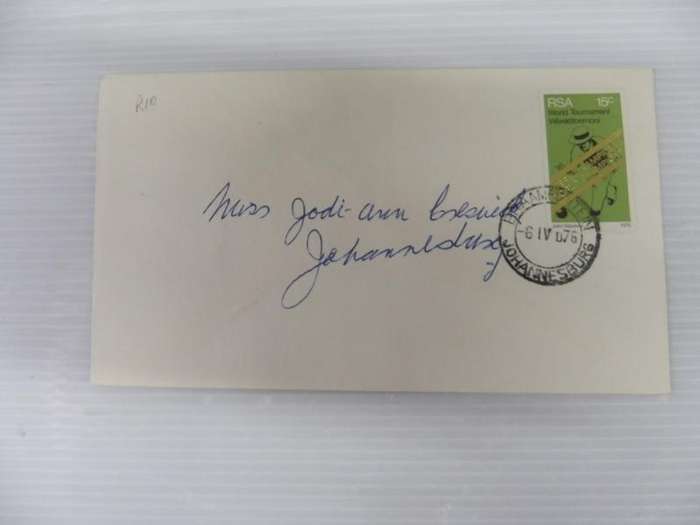 R10
RSA 15c
World Tournament
Wêreldtoernooi
Miss Jodi-ann
Johannesburg
-6 IV 076
JOHANNESBURG